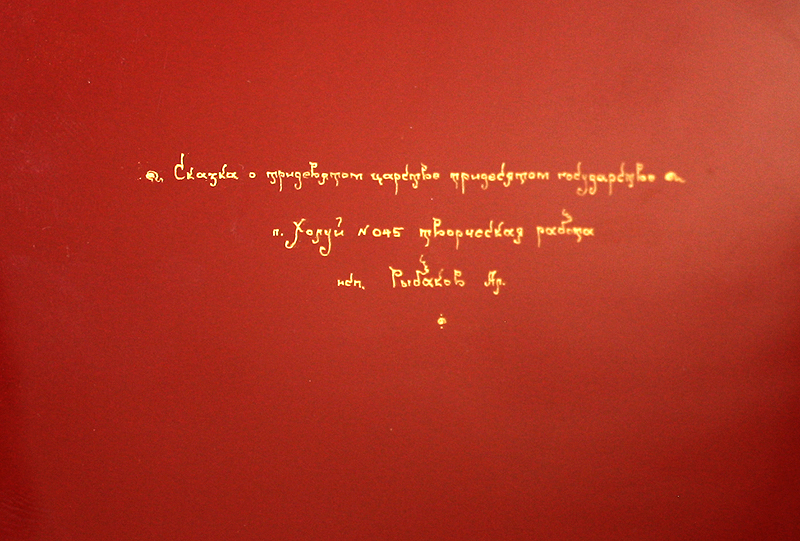 Сказка о тридевятом царстве тридесятом государстве
п. Холуй N 045 творческая работа
исп. Рыбаков Яр.